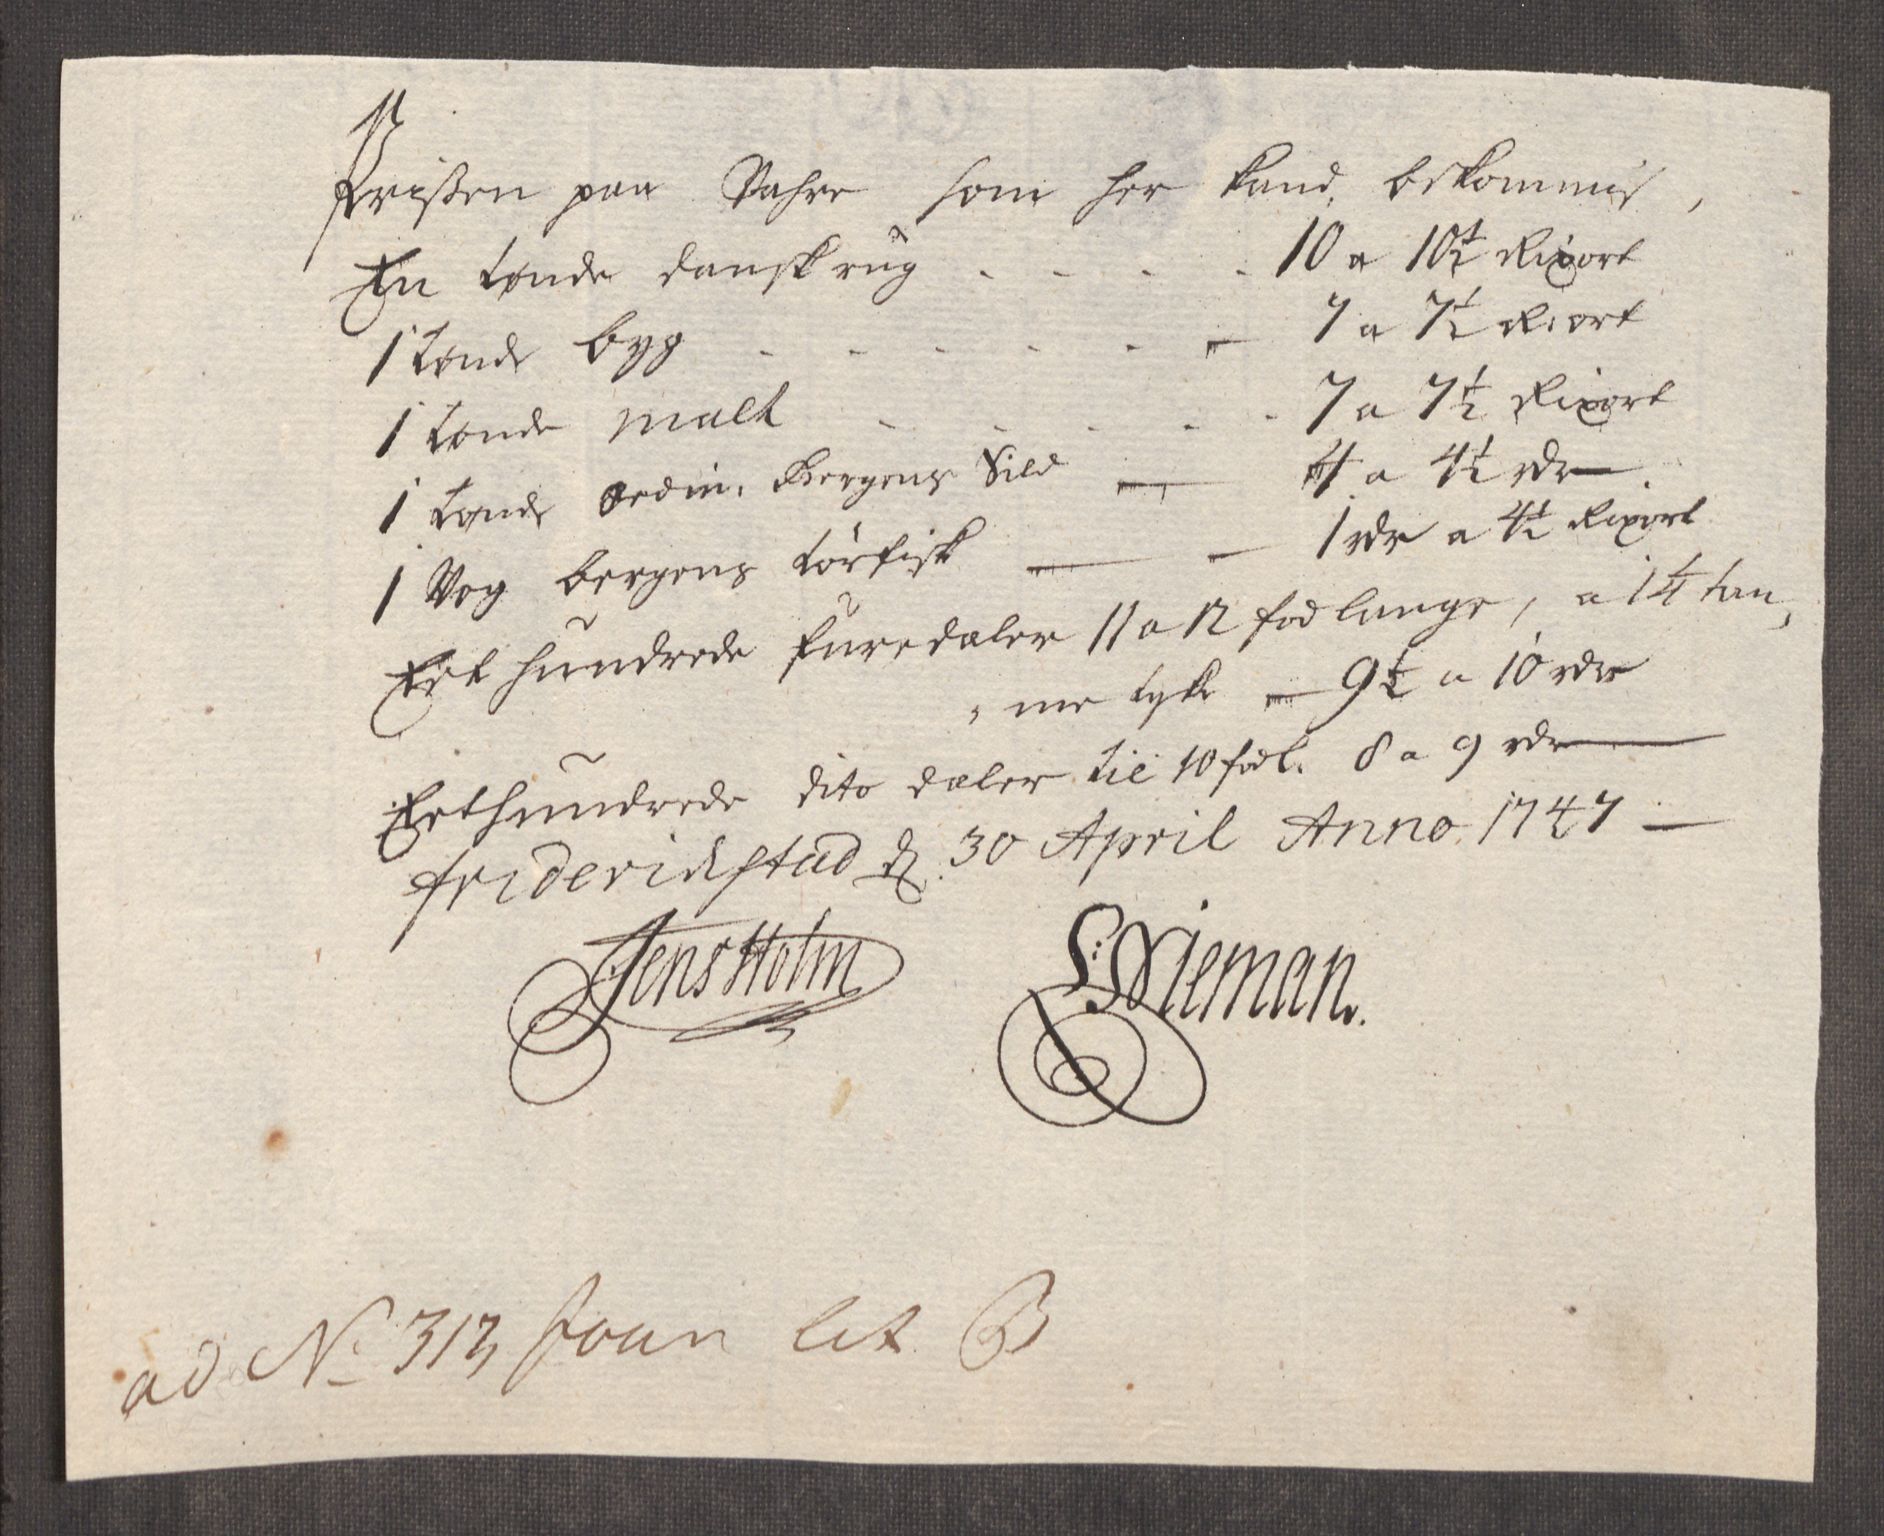 Prissen paa Vahre som her kand bekommis,
En tønde dansk rug - - - - 10 a 10½ Rixort
1 tønde byg - - - - - - 7 a 7½ Rixort
1 tønde malt - - - - - 7 a 7½ Rixort
1 tønde ordin. Bergens Sild — 4 a 4½ rdr
1 Vog bergens törfisk — — 1 rdr a 4½ Rixort
Eet hundrede furedæler 11 a 12 fod lange, a 1¼ tom,
me tyke — 9½ a 10 rdr
Eet hundrede dito dæler til 10 fod l. 8 a 9 rdr
Friderichstad d. 30 April Anno 1747 —
Jens Holm
S: Nieman.
ad No 313 lit B